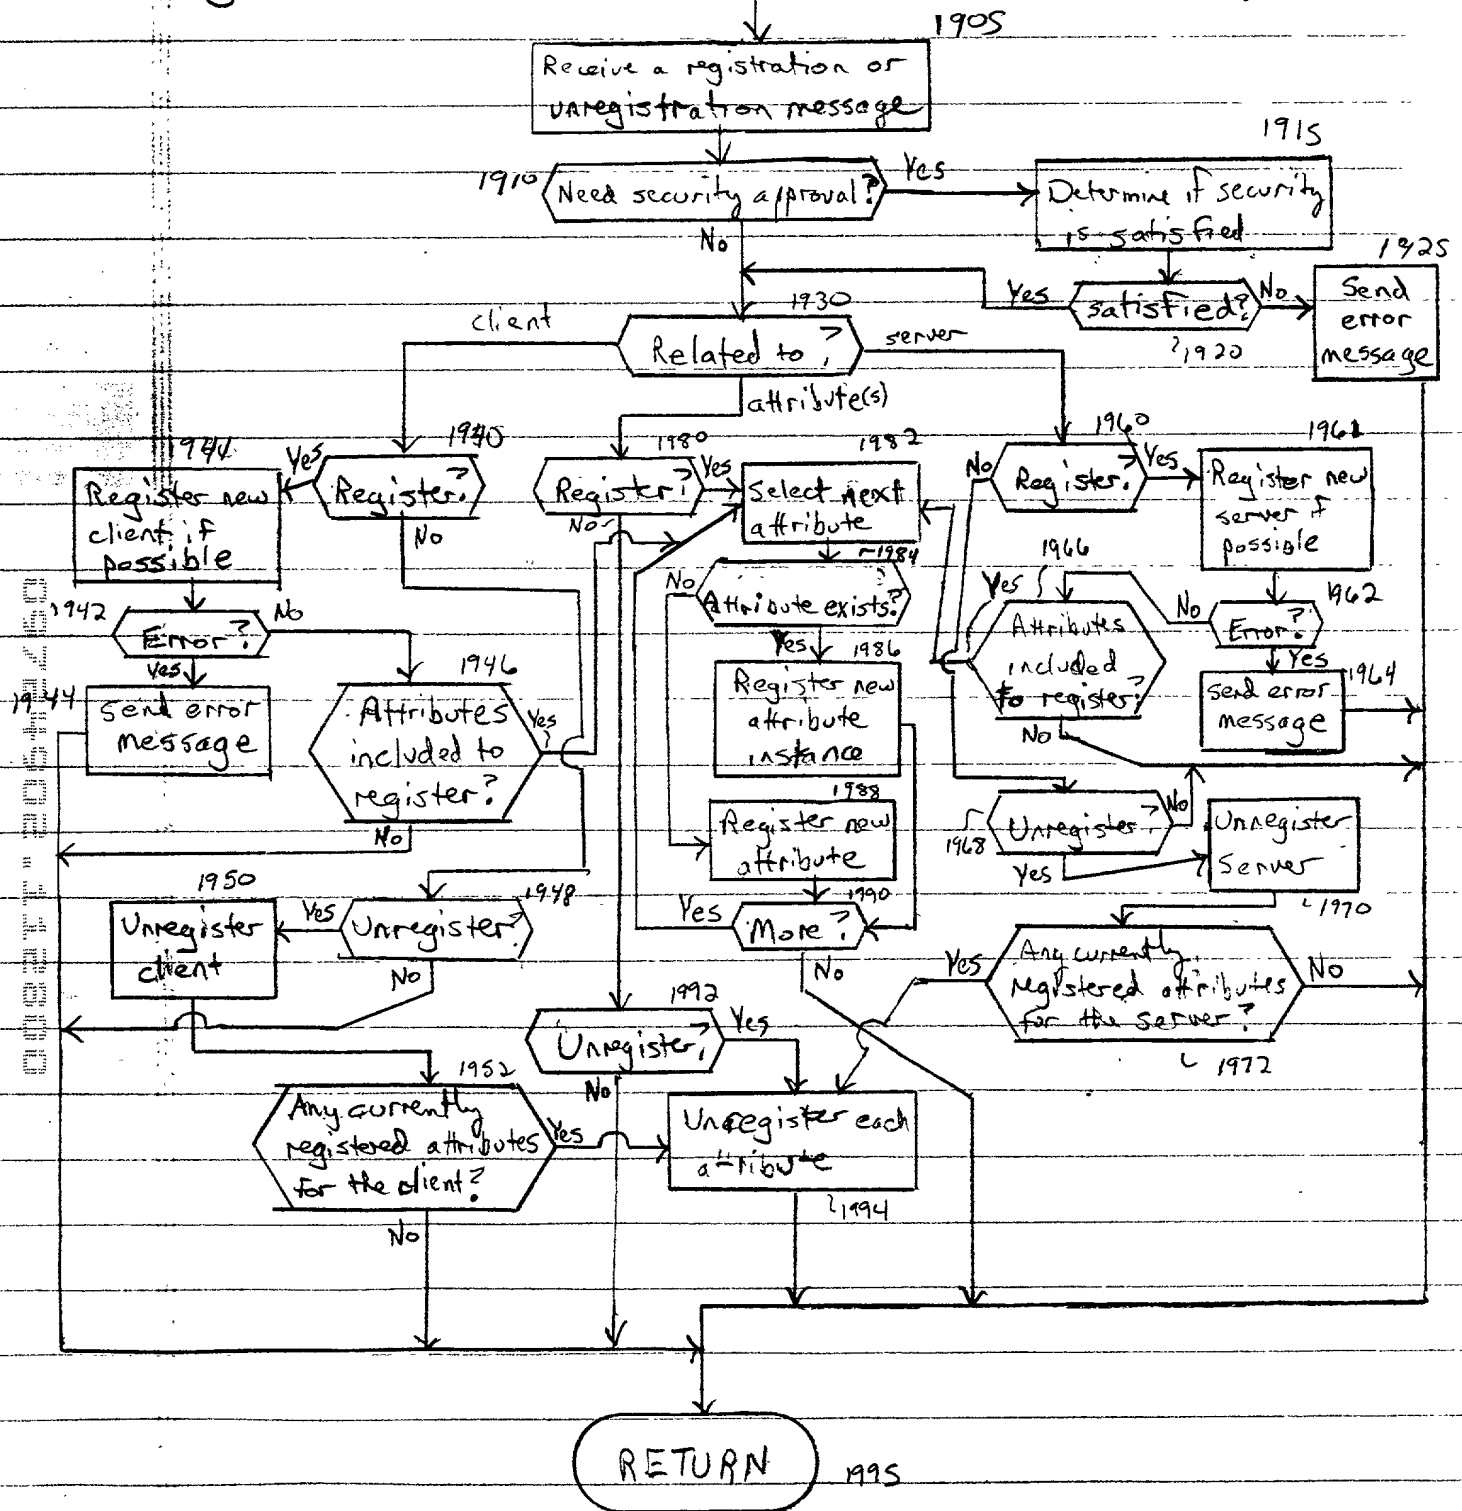 1905
Receive a registration or
unregistration message
1910
Need security approval?
Yes
No
1915
Determine if security
is satisfied
satisfied?
Yes
No
1920
1925
Send
error
message
1930
Related to?
client
attribute(s)
server
1940
Register?
Yes
No
Register new
client if
possible
1942
Error?
No
Yes
1944
Send error
message
1946
Attributes
included to
register?
Yes
No
1948
Unregister?
Yes
No
1950
Unregister
client
1952
Any currently
registered attributes
for the client?
Yes
No
1980
Register?
Yes
No
1982
Select next
attribute
1984
Attribute exists?
No
Yes
1986
Register new
attribute
instance
1988
Register new
attribute
1990
More?
Yes
No
1992
Unregister?
Yes
No
Unregister each
attribute
1994
1960
Register?
No
Yes
Register new
server if
possible
1962
Error?
No
Yes
1964
Send error
message
1966
Attributes
included
to register?
Yes
No
1968
Unregister?
No
Yes
Unregister
Server
1970
Any currently
registered attributes
for the server?
Yes
No
1972
RETURN
1995